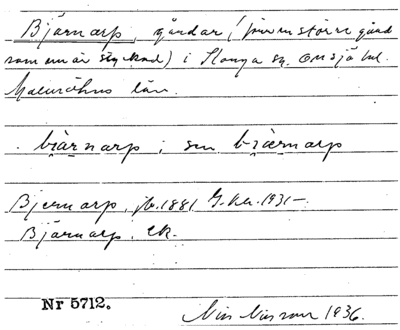 Bjärnarp, gårdar (förr en större gård
som nu är styckad) i Slonga sn. Onsjö hd.
Malmöhus län.
bjärnarp; sen bjærnarp
Bjernarp, jb. 1881 G.ka. 1931-
Bjärnarp. ek.
Nr 5712.
Nils Nilsson 1936.